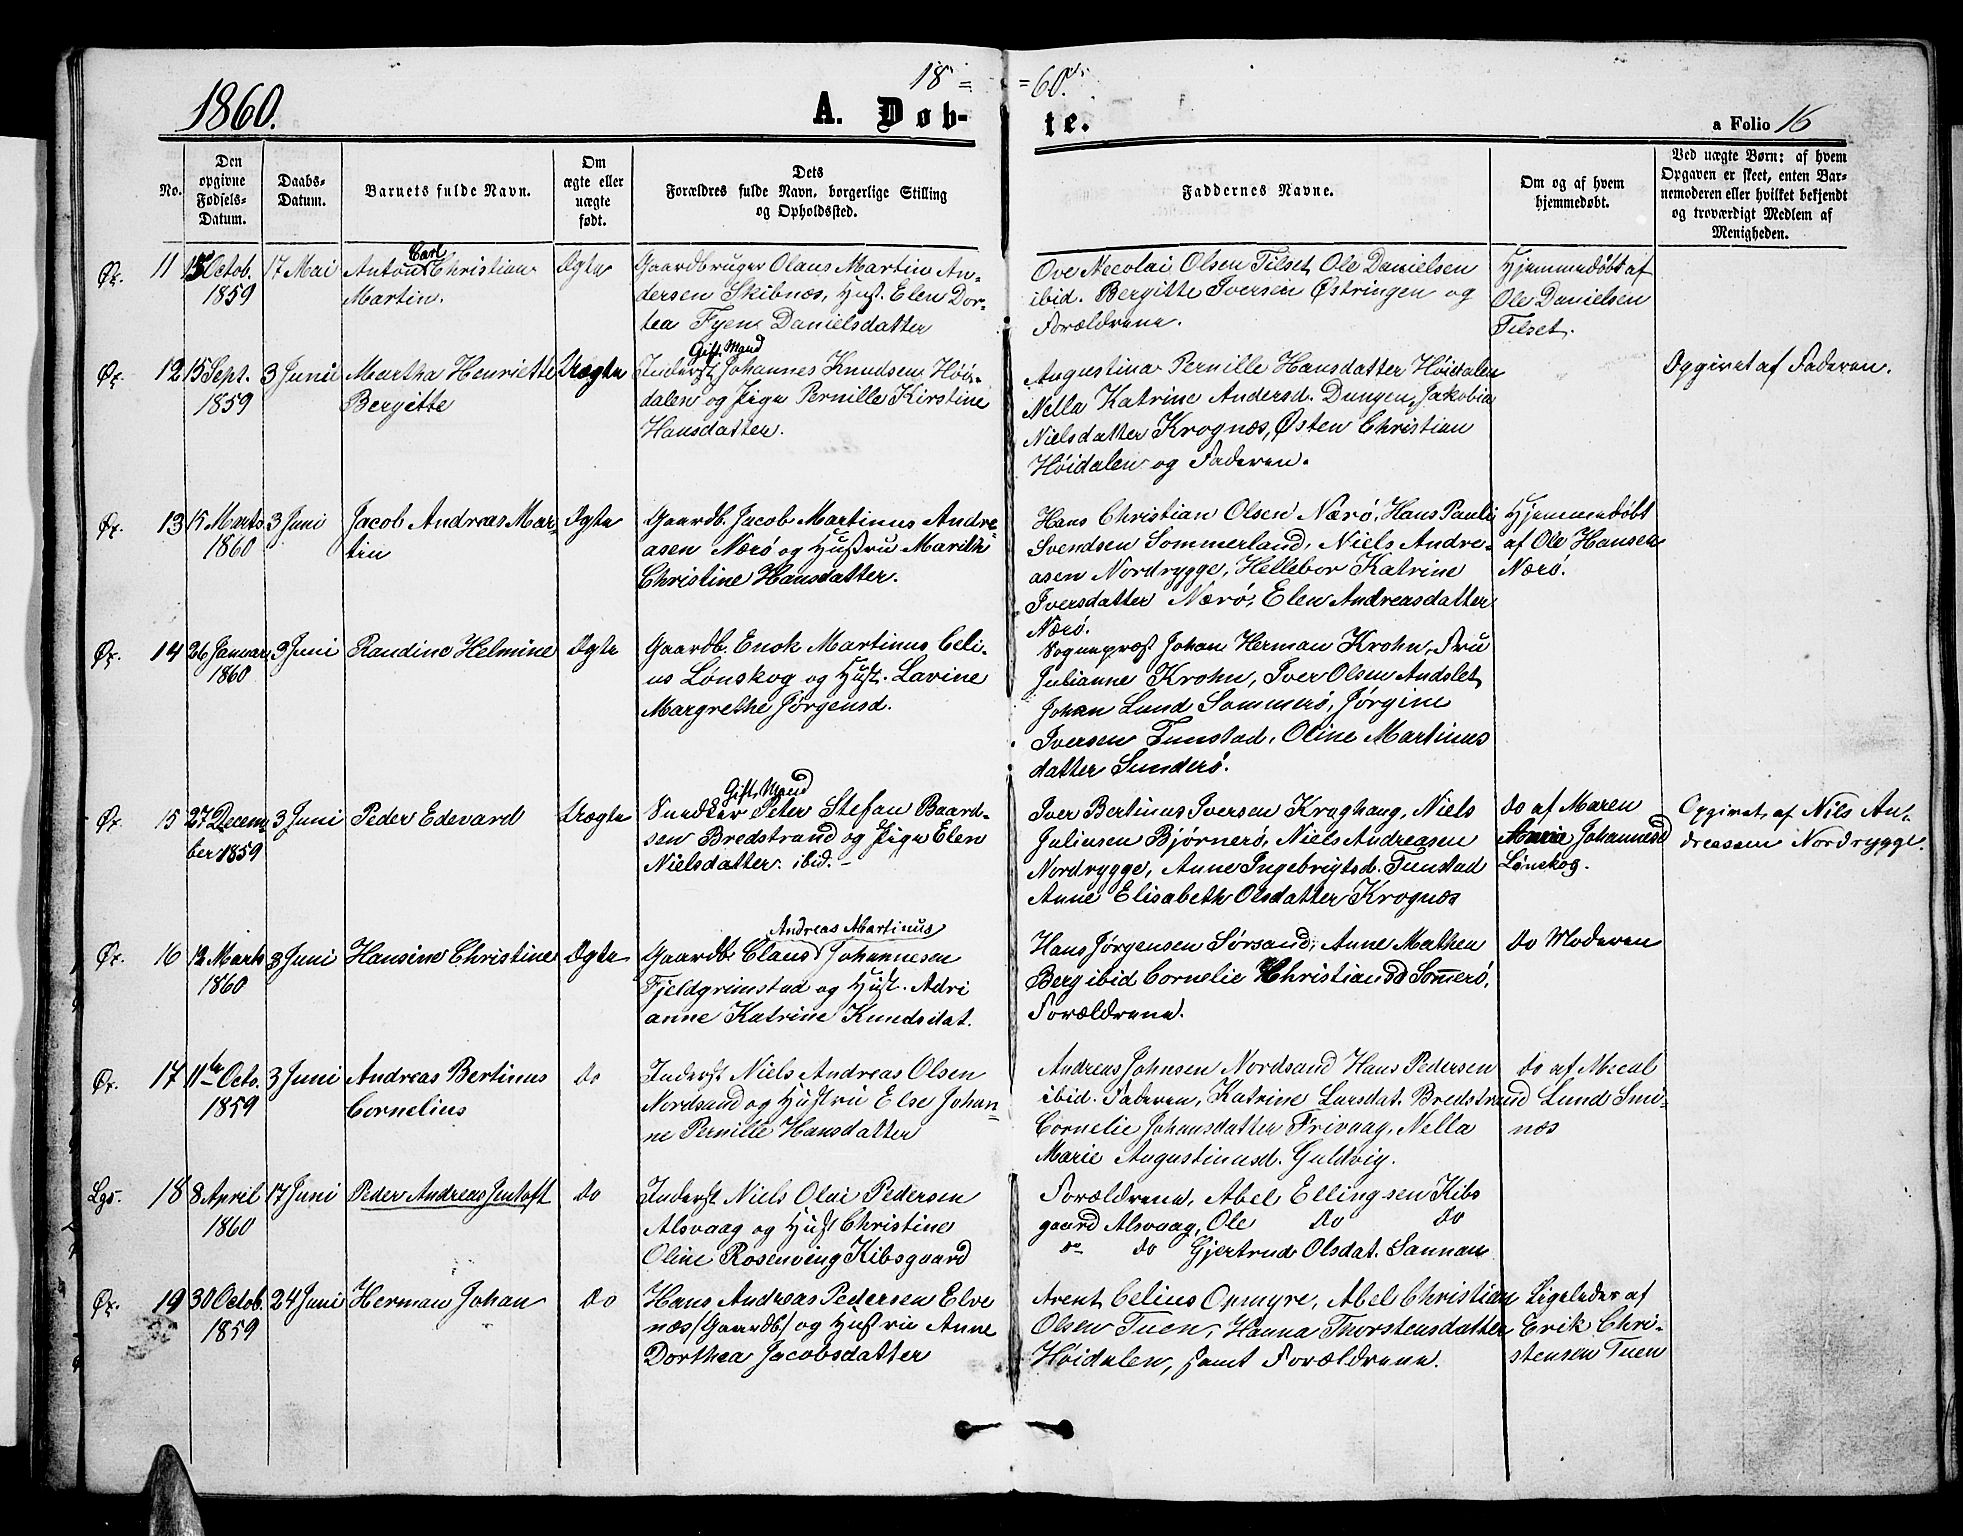 18 = = 60.
1860. A. Døb- te. a Folio 16
No.
Den opgivne Fødsels-Datum.
Daabs-Datum.
Barnets fulde Navn.
Om ægte eller uægte født.
Dets Forældres fulde Navn, borgerlige Stilling og Opholdssted.
Faddernes Navne.
Om og af hvem hjemmedøbt.
Ved uægte Børn: af hvem Opgaven er skeet, enten Barnemoderen eller hvilket bekjendt og troværdigt Medlem af Menigheden.
Øx. 11 15 Octob. 1859 17 Mai
Anton Carl Christian
Martin.
Ægte
Gaardbruger Olaus Martin An-
dersen Skibnæs, Hust. Elen Dor-
tea Fyen Danielsdatter
Ove Necolai Olsen Tilset, Ole Danielsen
ibid. Bergitte Iversen Østringen og
Forældrene.
Hjemmedøbt af
Ole Danielsen
Tilset.
Øx. 12 15 Sept. 1859 3 Juni
Martha Henriette
Bergitte
Uægte
Gift Mand
Inderst Johannes Knudsen Høi-
dalen og Pige Pernille Kirstine
Hansdatter.
Augustina Pernille Hansdatter Høidalen
Nella Katrine Andersd. Dungen, Jakobia
Nielsdatter Krognæs, Østen Christian
Høidalen og Faderen.
Opgivet af Faderen.
Øx. 13 15 Marts 1860 3 Juni
Jacob Andreas Mar-
tin
Ægte
Gaardb. Jacob Martinus Andre-
asen Nærø og Hustru Marith
Christine Hansdatter.
Hans Christian Olsen Nærø, Hans Pauli
Svendsen Sommerland, Niels Andre-
asen Nordrygge, Hellebor Katrine
Iversdatter Nærø, Elen Andreasdatter
Nærø.
Hjemmedøbt
af Ole Hansen
Nærø.
Øx. 14 26 Januar 1860 3 Juni
Randine Helmine
Ægte
Gaardb. Enok Martinus Celi-
us Lønskog og Hust. Lavine
Margrethe Jørgensd.
Sognepræst Johan Herman Krohn, Fru
Julianne Krohn, Iver Olsen Andslet,
Johan Lund Sommerø, Jørgine
Iversen Tunstad, Oline Martinus
datter Sunderø.
Øx. 15 27 Decem-
ber 1859 3 Juni
Peder Edevard
Uægte
Gift Mand
Snedker Peter Stefan Baard-
sen Bredstrand og Pige Elen
Nielsdatter ibid. -
Iver Bertinus Iversen Kroghaug, Niels
Juliusen Bjørnerø, Niels Andreasen
Nordrygge, Anne Ingebrigtsd. Tunstad
Anne Elisabeth Olsdatter Krognæs
do af Maren
Maria Johannesd
Lønskog.
Opgivet af Nils An-
dreassen Nordrygge.
Øx. 16 12 Marts 1860 3 Juni
Hansine Christine
Ægte
Andreas Martinus
Gaardb. Claus Johannesen
Fjeldgrimstad og Hust. Adri
anne Katrine Knudsdat.
Hans Jørgensen Sørsand, Anne Mathea
Berg ibid Cornelie Christiansd Sommerø,
Forældrene.
do Moderen
Øx. 17 11te Octo. 1859 3 Juni
Andreas Bertinus
Cornelius
do
Inderst Niels Andreas Olsen
Nordsand og Hustru Else Johan-
ne Pernille Hansdatter
Andreas Johnsen Nordsand Hans Pedersen
ibid. Faderen, Katrine Larsdat. Bredstrand
Cornelie Johansdatter Frivaag, Nella
Marie Augustinusd. Guldvig.
do af Mecal
Lund Smi-
næs
Lgs. 18 8 April 1860 17 Juni
Peder Andreas Jentoft
do
Inderst Niels Olai Pedersen
Alsvaag og Hust Christine
Oline Rosenving Kibsgaard
Forældrene, Abel Ellingsen Kibs
gaard Alsvaag, Ole do do
do do Gjertrud Olsdat. Sannan
Øx. 19 30 Octob. 1859 24 Juni
Herman Johan
do
Hans Andreas Pedersen Elve
næs /Gaardb/ og Hustru Anne
Dorthea Jacobsdatter
Arent Celius Opmyre, Abel Christian
Olsen Tuen, Hanna Thorstensdatter
Høidalen, samt Forældrene.
Ligeledes af
Erik Chri-
stensen Tuen